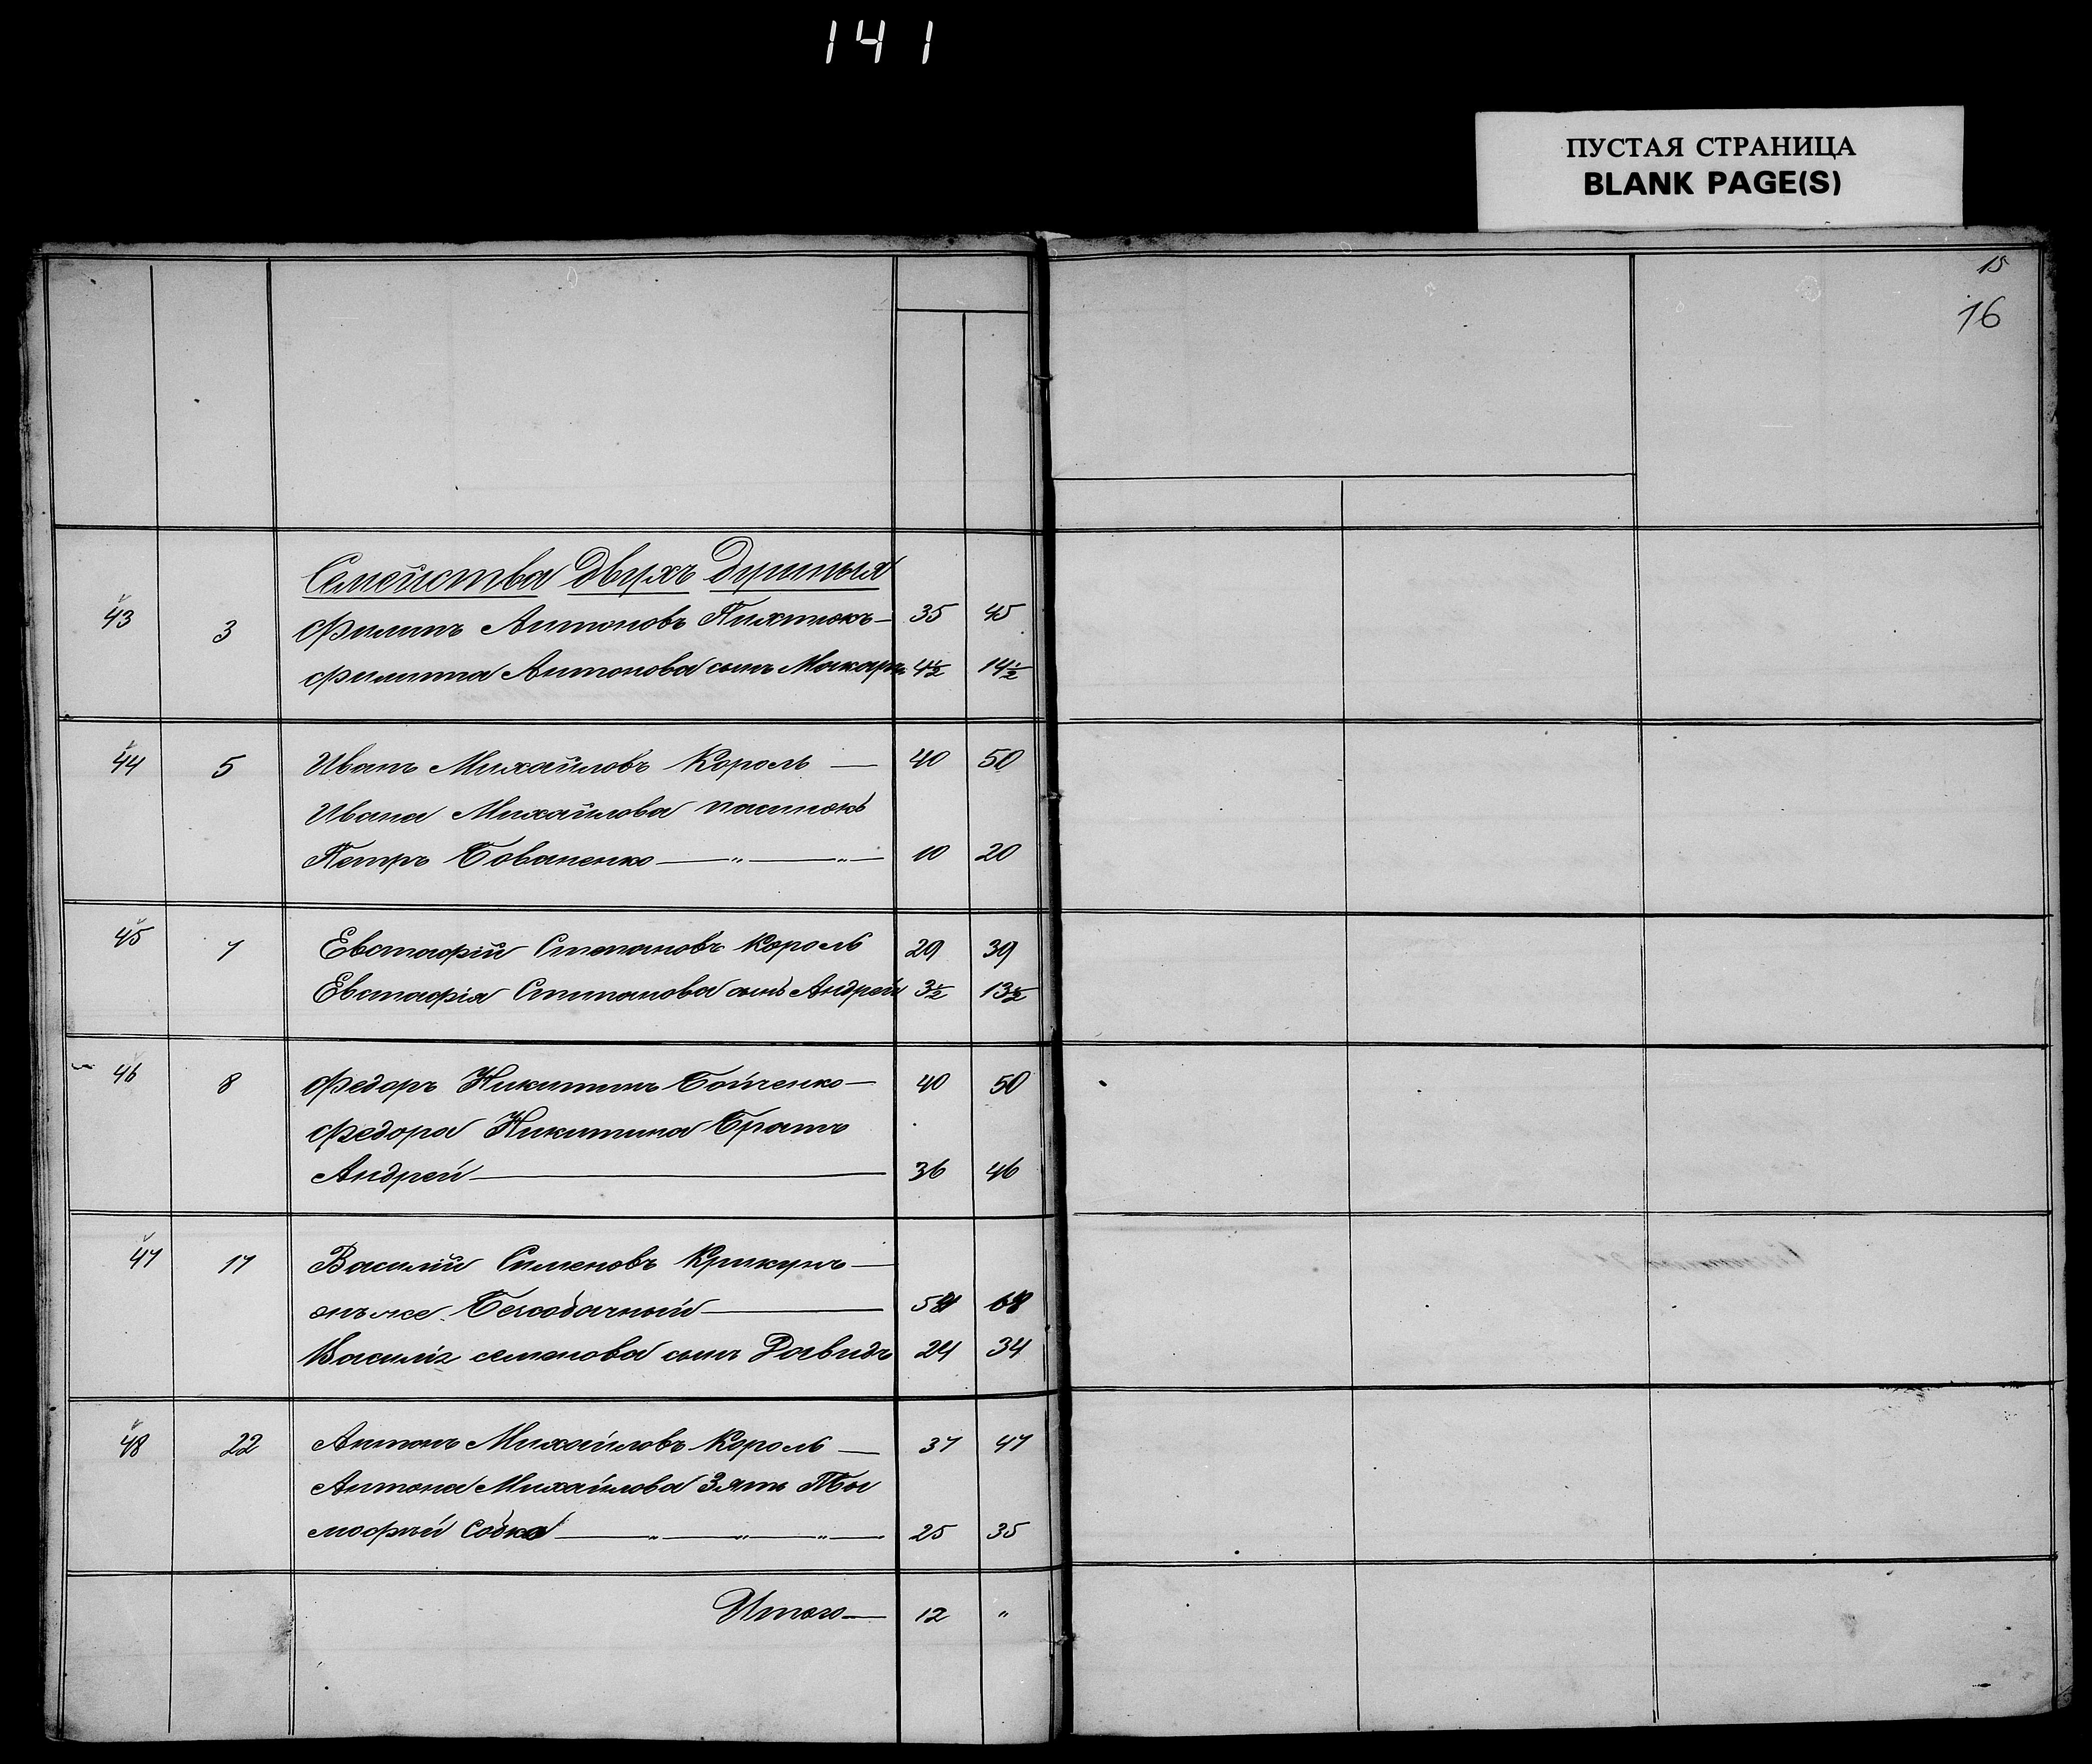 141
ПУСТАЯ СТРАНИЦА
BLANK PAGE(S)
15
16
Семейства двухъ душныя
43 3 Филипъ Антоновъ Пихтюкъ — 35 45
Филиппа Антонова сынъ Макаръ 4½ 14½
44 5 Иванъ Михайловъ Король — 40 50
Ивана Михайлова пасынокъ
Петръ Бованенко — " — " — 10 20
45 7 Евстафій Степановъ Король 29 39
Евстафія Степанова сынъ Андрей 3½ 13½
46 8 Федоръ Никитинъ Бойченко — 40 50
Федора Никитина Братъ
Андрей — 36 46
47 17 Василій Семеновъ Крикунъ —
онъ же Безсобачный — 58 68
Василія семенова сынъ Давидъ 24 34
48 22 Антонъ Михайловъ Король — 37 47
Антона Михайлова Зять Ты
мофѣй Собка — " — " — " — 25 35
Итого — 12 "